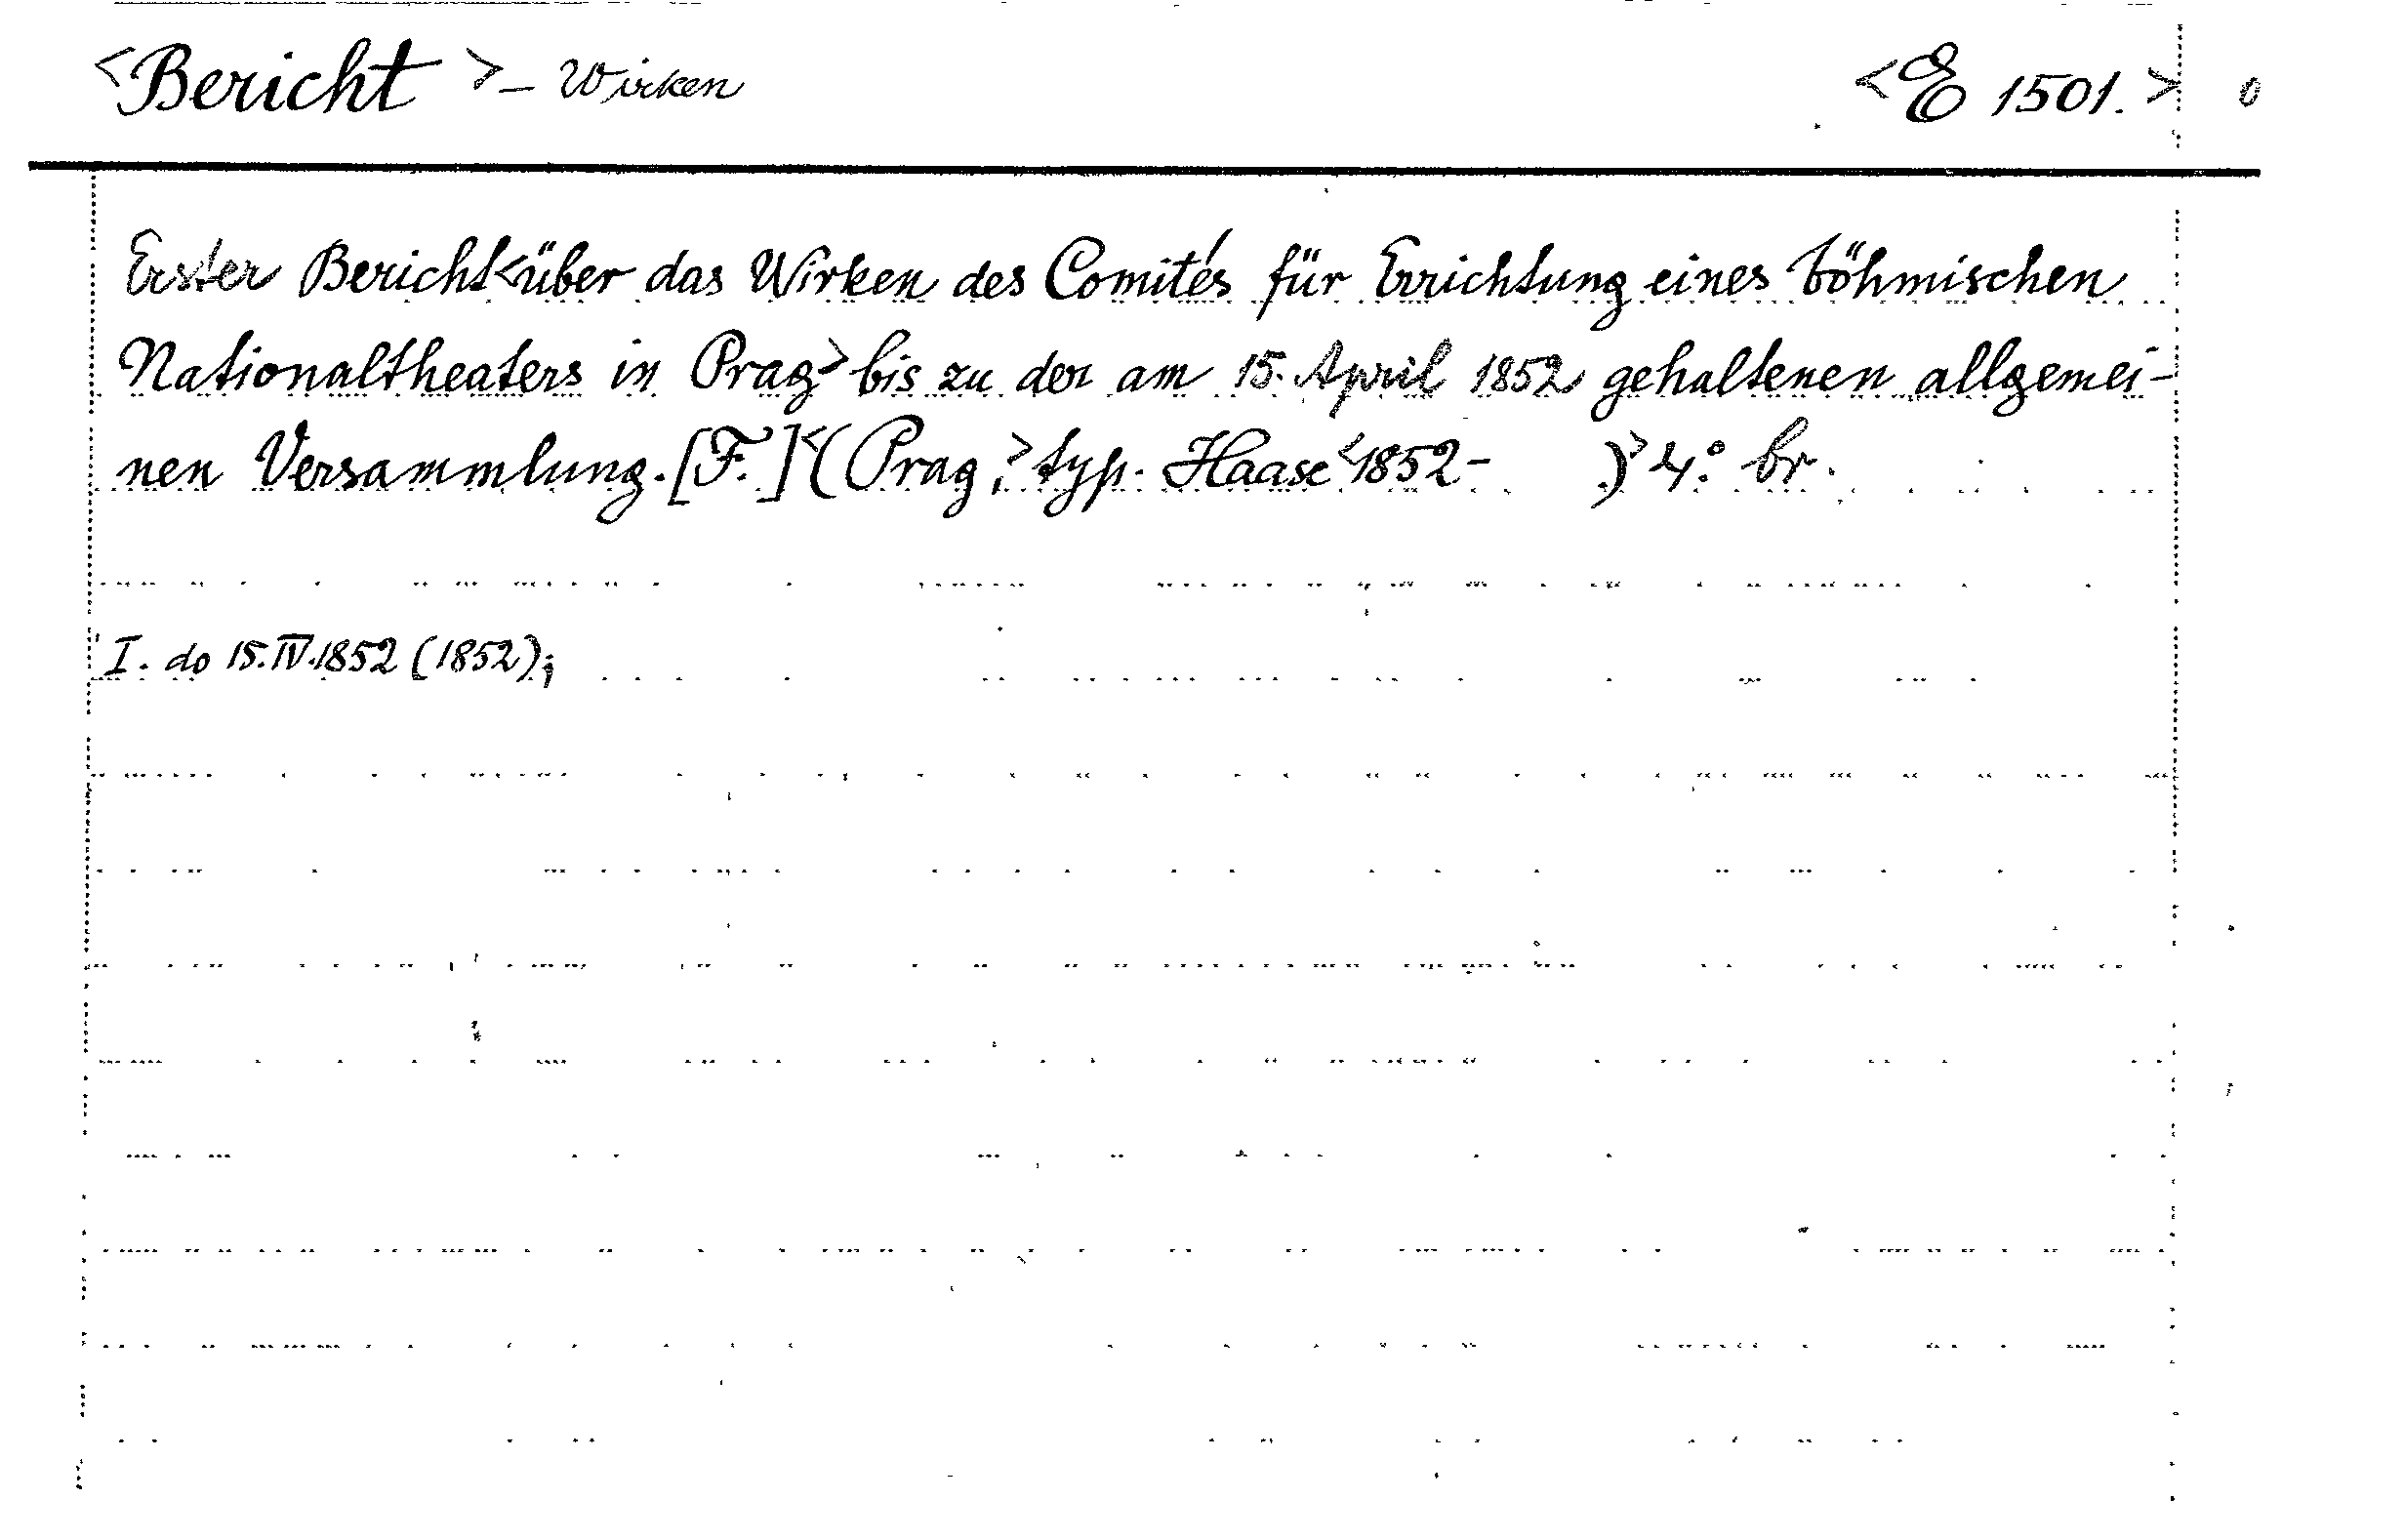 <Bericht > - Wirken <E 1501. > 0
Erster Bericht<über das Wirken des Comités für Errichtung eines böhmischen
Nationaltheaters in Prag> bis zu der am 15. April 1852 gehaltenen allgemei-
nen Versammlung. [F.] <(Prag,> typ. Haase <1852- .)> 4.° br.
I. do 15.IV.1852 (1852);